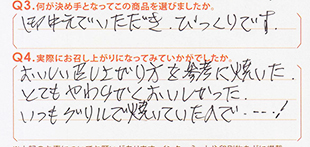 Q3.何が決め手となってこの商品を選びましたか。
御中元でいただき、びっくりです。
Q4.実際にお召し上がりになってみていかがでしたか。
おいしい召し上がり方を参考に焼いた。
とてもやわらかくおいしかった。
いつもグリルで焼いていたので、---!